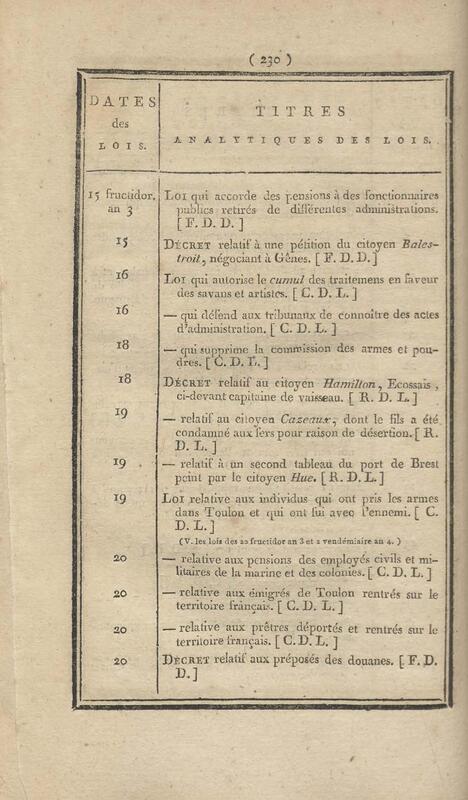 ( 230 )
DATES
des
LOIS.
TITRES
ANALYTIQUES DES LOIS.
15 fructidor, an 3
LOI qui accorde des pensions à des fonctionnaires
publics retirés de différentes administrations.
[ F. D. D. ]
15
DÉCRET relatif à une pétition du citoyen Bales-
troit, négociant à Gênes. [ F. D. D.]
16
LOI qui autorise le cumul des traitemens en faveur
des savans et artistes. [ C. D. L. ]
16
— qui défend aux tribunaux de connoître des actes
d'administration. [ C. D. L. ]
18
— qui supprime la commission des armes et pou-
dres. [ C. D. L.]
18
DÉCRET relatif au citoyen Hamilton, Ecossais,
ci-devant capitaine de vaisseau. [ R. D. L. ]
19
— relatif au citoyen Cazeaux, dont le fils a été
condamné aux fers pour raison de désertion. [ R.
D. L. ]
19
— relatif à un second tableau du port de Brest
peint par le citoyen Hue. [ R. D. L. ]
19
LOI relative aux individus qui ont pris les armes
dans Toulon et qui ont fui avec l'ennemi. [ C.
D. L. ]
(V. les lois des 20 fructidor an 3 et 2 vendémiaire an 4. )
20
— relative aux pensions des employés civils et mi-
litaires de la marine et des colonies. [ C. D. L. ]
20
— relative aux émigrés de Toulon rentrés sur le
territoire français. [ C. D. L. ]
20
— relative aux prêtres déportés et rentrés sur le
territoire français. [ C. D. L. ]
20
DÉCRET relatif aux préposés des douanes. [ F. D.
D. ]